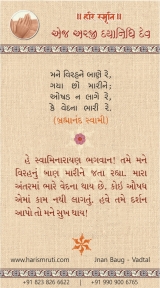 ॥ હરિ સ્મૃતિ ॥
એજ અરજી દયાનિધિ દેવ
મને વિરહને બાણે રે,
ગયા છો મારીને;
ઓષડ ન લાગે રે,
કે વેદના ભારી રે.
(બ્રહ્માનંદ સ્વામી)
હે સ્વામિનારાયણ ભગવાન! તમે મને
વિરહનું બાણ મારીને જતા રહ્યા. મારા
અંતરમાં ભારે વેદના થાય છે. કોઇ ઔષધ
એમાં કામ નથી લાગતું. હવે તમે દર્શન
આપો તો મને સુખ થાય!
www.harismruti.com
Jnan Baug - Vadtal
+91 823 826 6622 | +91 990 900 6765